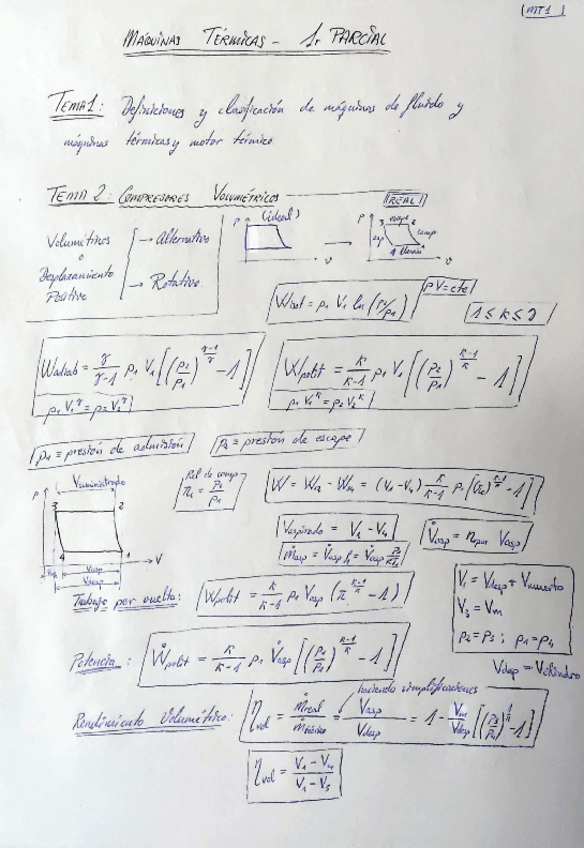 (MT1)
MÁQUINAS TÉRMICAS - 1r PARCIAL
TEMA 1: Definiciones y clasificación de máquinas de fluido y
máquinas térmicas y motor térmico
TEMA 2: COMPRESORES VOLUMÉTRICOS
Volumétricos o Desplazamiento Positivo
→ Alternativo
→ Rotativo
P (ideal) v
REAL
P 3 escape 2 exp comp 1 v
Wisot = p1 V1 ln (p2/p1)
pV = cte
1 ≤ k ≤ γ
Wadiab = γ/(γ-1) p1 V1 [(p2/p1)^((γ-1)/γ) - 1]
p1 V1^γ = p2 V2^γ
Wpolit = k/(k-1) p1 V1 [(p2/p1)^((k-1)/k) - 1]
p1 V1^k = p2 V2^k
p1 = presión de admisión
p2 = presión de escape
P Vsuministrado 3 2 4 1 V
Vasp
Vdesp
Rel de comp
= p2/p1
V aspirado = V1 - V4
V̇asp = Vasp
ṁasp = V̇asp
V1 = Vdesp + Vmuerto
V3 = Vm
p2 = p3 ; p1 = p4
Vdesp = Vcilindro
Trabajo por vuelta: Wpolit = k/(k-1) p1 Vasp (π^((k-1)/k) - 1)
Potencia: Ẇpolit = k/(k-1) p1 V̇asp [(p2/p1)^((k-1)/k) - 1]
haciendo simplificaciones
Rendimiento Volumétrico: ηvol = ṁreal/ṁteórico = Vasp/Vdesp = 1 - Vm/Vdesp [(p2/p1)^(1/k) - 1]